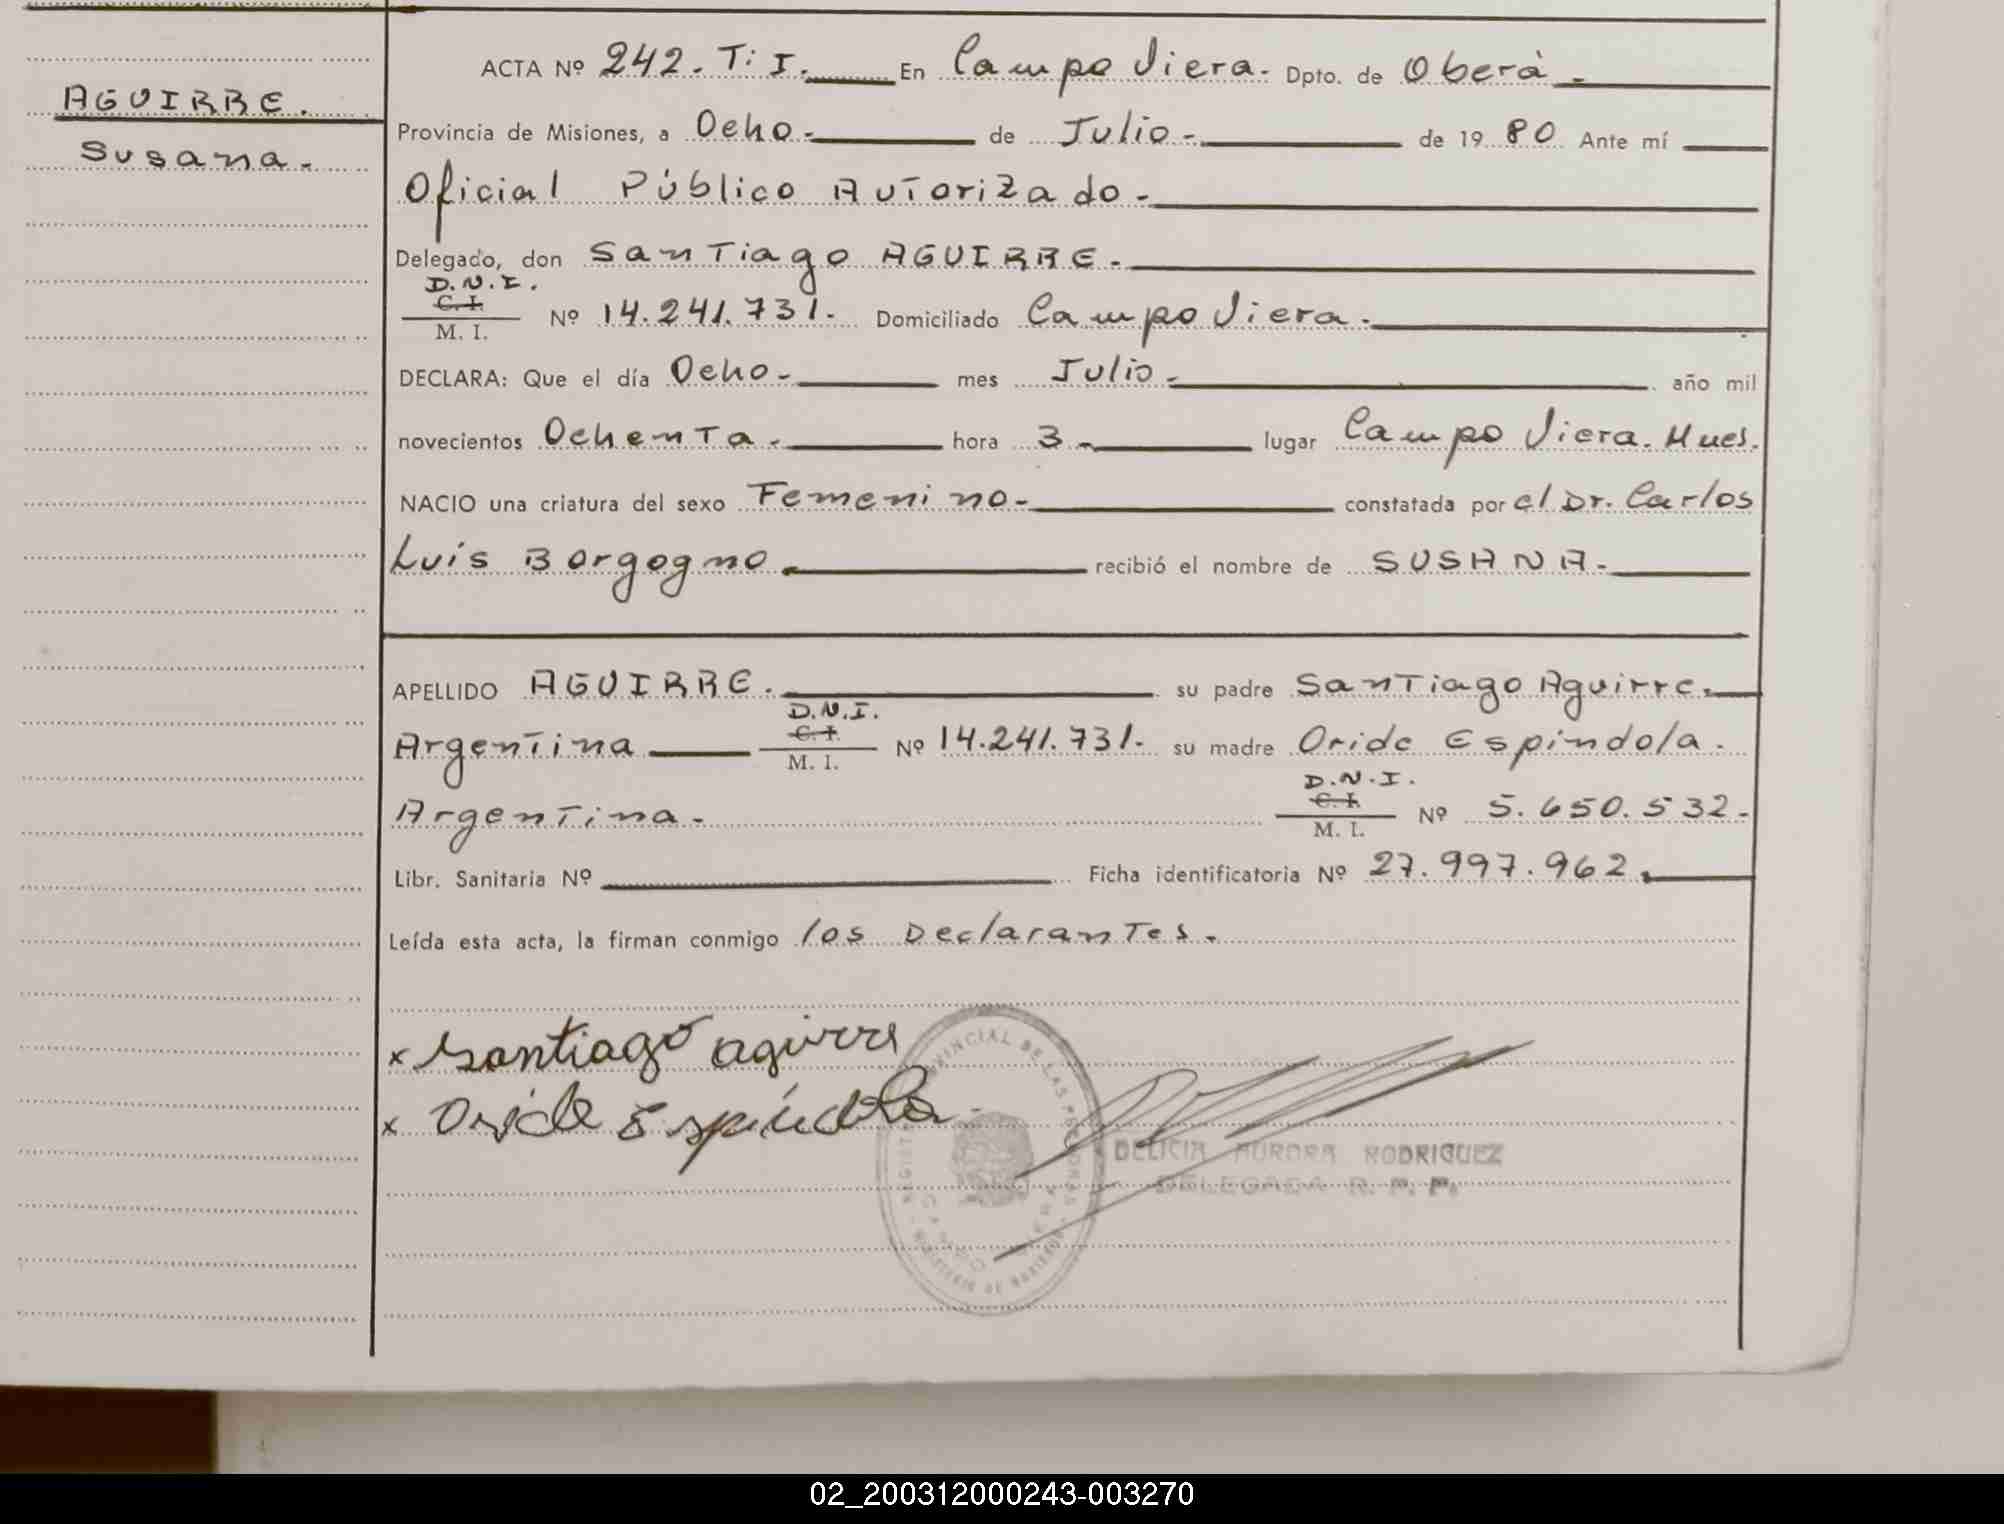 AGUIRRE.
Susana.-
ACTA Nº 242. T: I. En Campo Viera.- Dpto. de Oberá.-
Provincia de Misiones, a Ocho.- de Julio.- de 1980 Ante mí
Oficial Público Autorizado.-
Delegado, don Santiago AGUIRRE.-
D.N.I.
C. I.
M. I. Nº 14.241.731.- Domiciliado Campo Viera.-
DECLARA: Que el día Ocho.- mes Julio.- año mil
novecientos Ochenta.- hora 3.- lugar Campo Viera.
NACIO una criatura del sexo Femenino.- constatada por el Dr. Carlos
Luis Borgogno.- recibió el nombre de SUSANA.-
APELLIDO AGUIRRE.- su padre Santiago Aguirre.-
D.N.I.
C. I.
Argentina M. I. Nº 14.241.731.- su madre Oride Espindola.-
D.N.I.
C. I.
Argentina.- M. I. Nº 5.650.532.-
Libr. Sanitaria Nº Ficha identificatoria Nº 27.997.962.
Leída esta acta, la firman conmigo los Declarantes.-
x Santiago aguirre
x Oride Espindola.-
REGISTRO PROVINCIAL DE LAS PERSONAS
CAMPO VIERA
MINISTERIO DE GOBIERNO
DELICIA AURORA RODRIGUEZ
DELEGADA R. P. P.
02_200312000243-003270